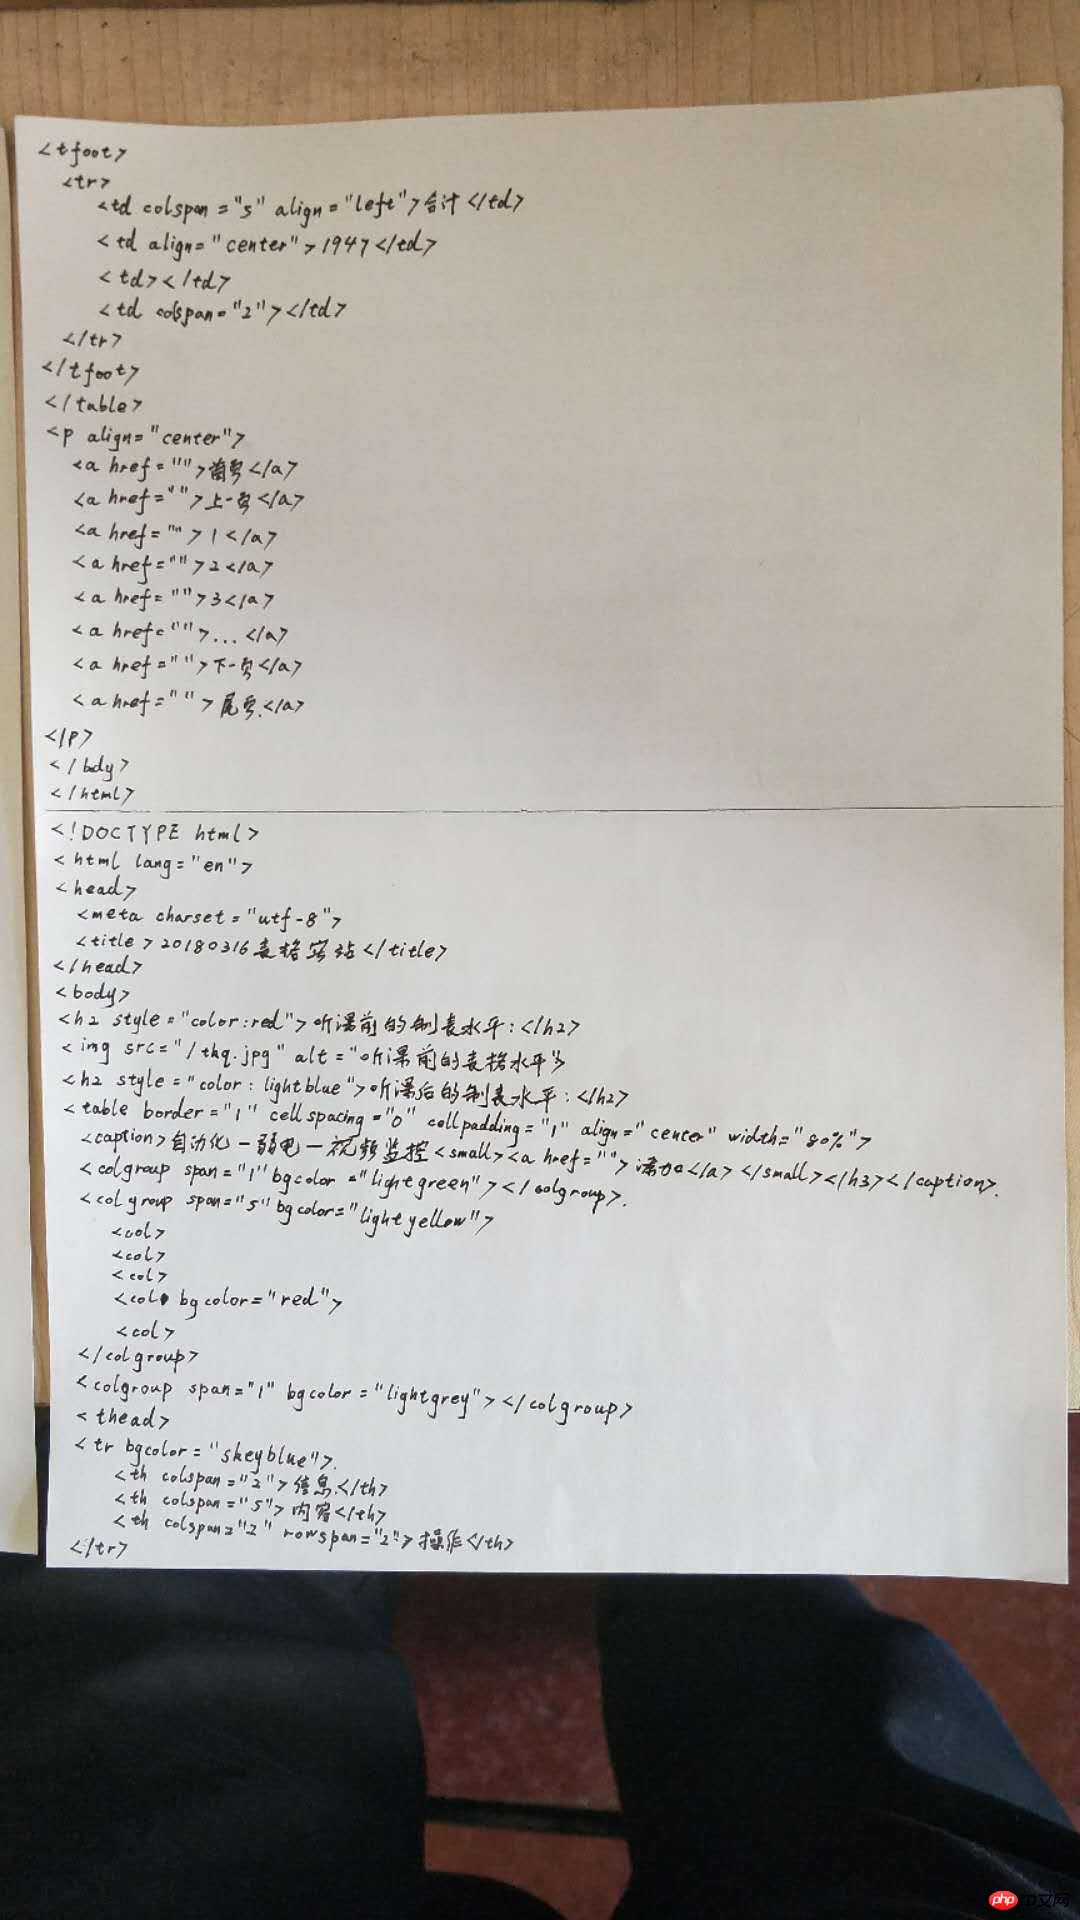 <tfoot>
<tr>
<td colspan="5" align="left">合计</td>
<td align="center">1947</td>
<td></td>
<td colspan="2"></td>
</tr>
</tfoot>
</table>
<p align="center">
<a href="">首页</a>
<a href="">上一页</a>
<a href="">1</a>
<a href="">2</a>
<a href="">3</a>
<a href="">...</a>
<a href="">下一页</a>
<a href="">尾页</a>
</p>
</bdy>
</html>
<!DOCTYPE html>
<html lang="en">
<head>
<meta charset="utf-8">
<title>20180316表格实站</title>
</head>
<body>
<h2 style="color:red">听课前的制表水平:</h2>
<img src="/thq.jpg" alt="听课前的表格水平">
<h2 style="color:lightblue">听课后的制表水平:</h2>
<table border="1" cellspacing="0" cellpadding="1" align="center" width="80%">
<caption>自动化一弱电一视频监控<small><a href="">添加</a></small></h3></caption>.
<colgroup span="1" bgcolor="lightgreen"></colgroup>.
<colgroup span="5" bgcolor="lightyellow">
<col>
<col>
<col>
<col bgcolor="red">
<col>
</colgroup>
<colgroup span="1" bgcolor="lightgrey"></colgroup>
<thead>
<tr bgcolor="skeyblue">.
<th colspan="2">信息</th>
<th colspan="5">内容</th>
<th colspan="2" rowspan="2">操作</th>
</tr>
php中文网